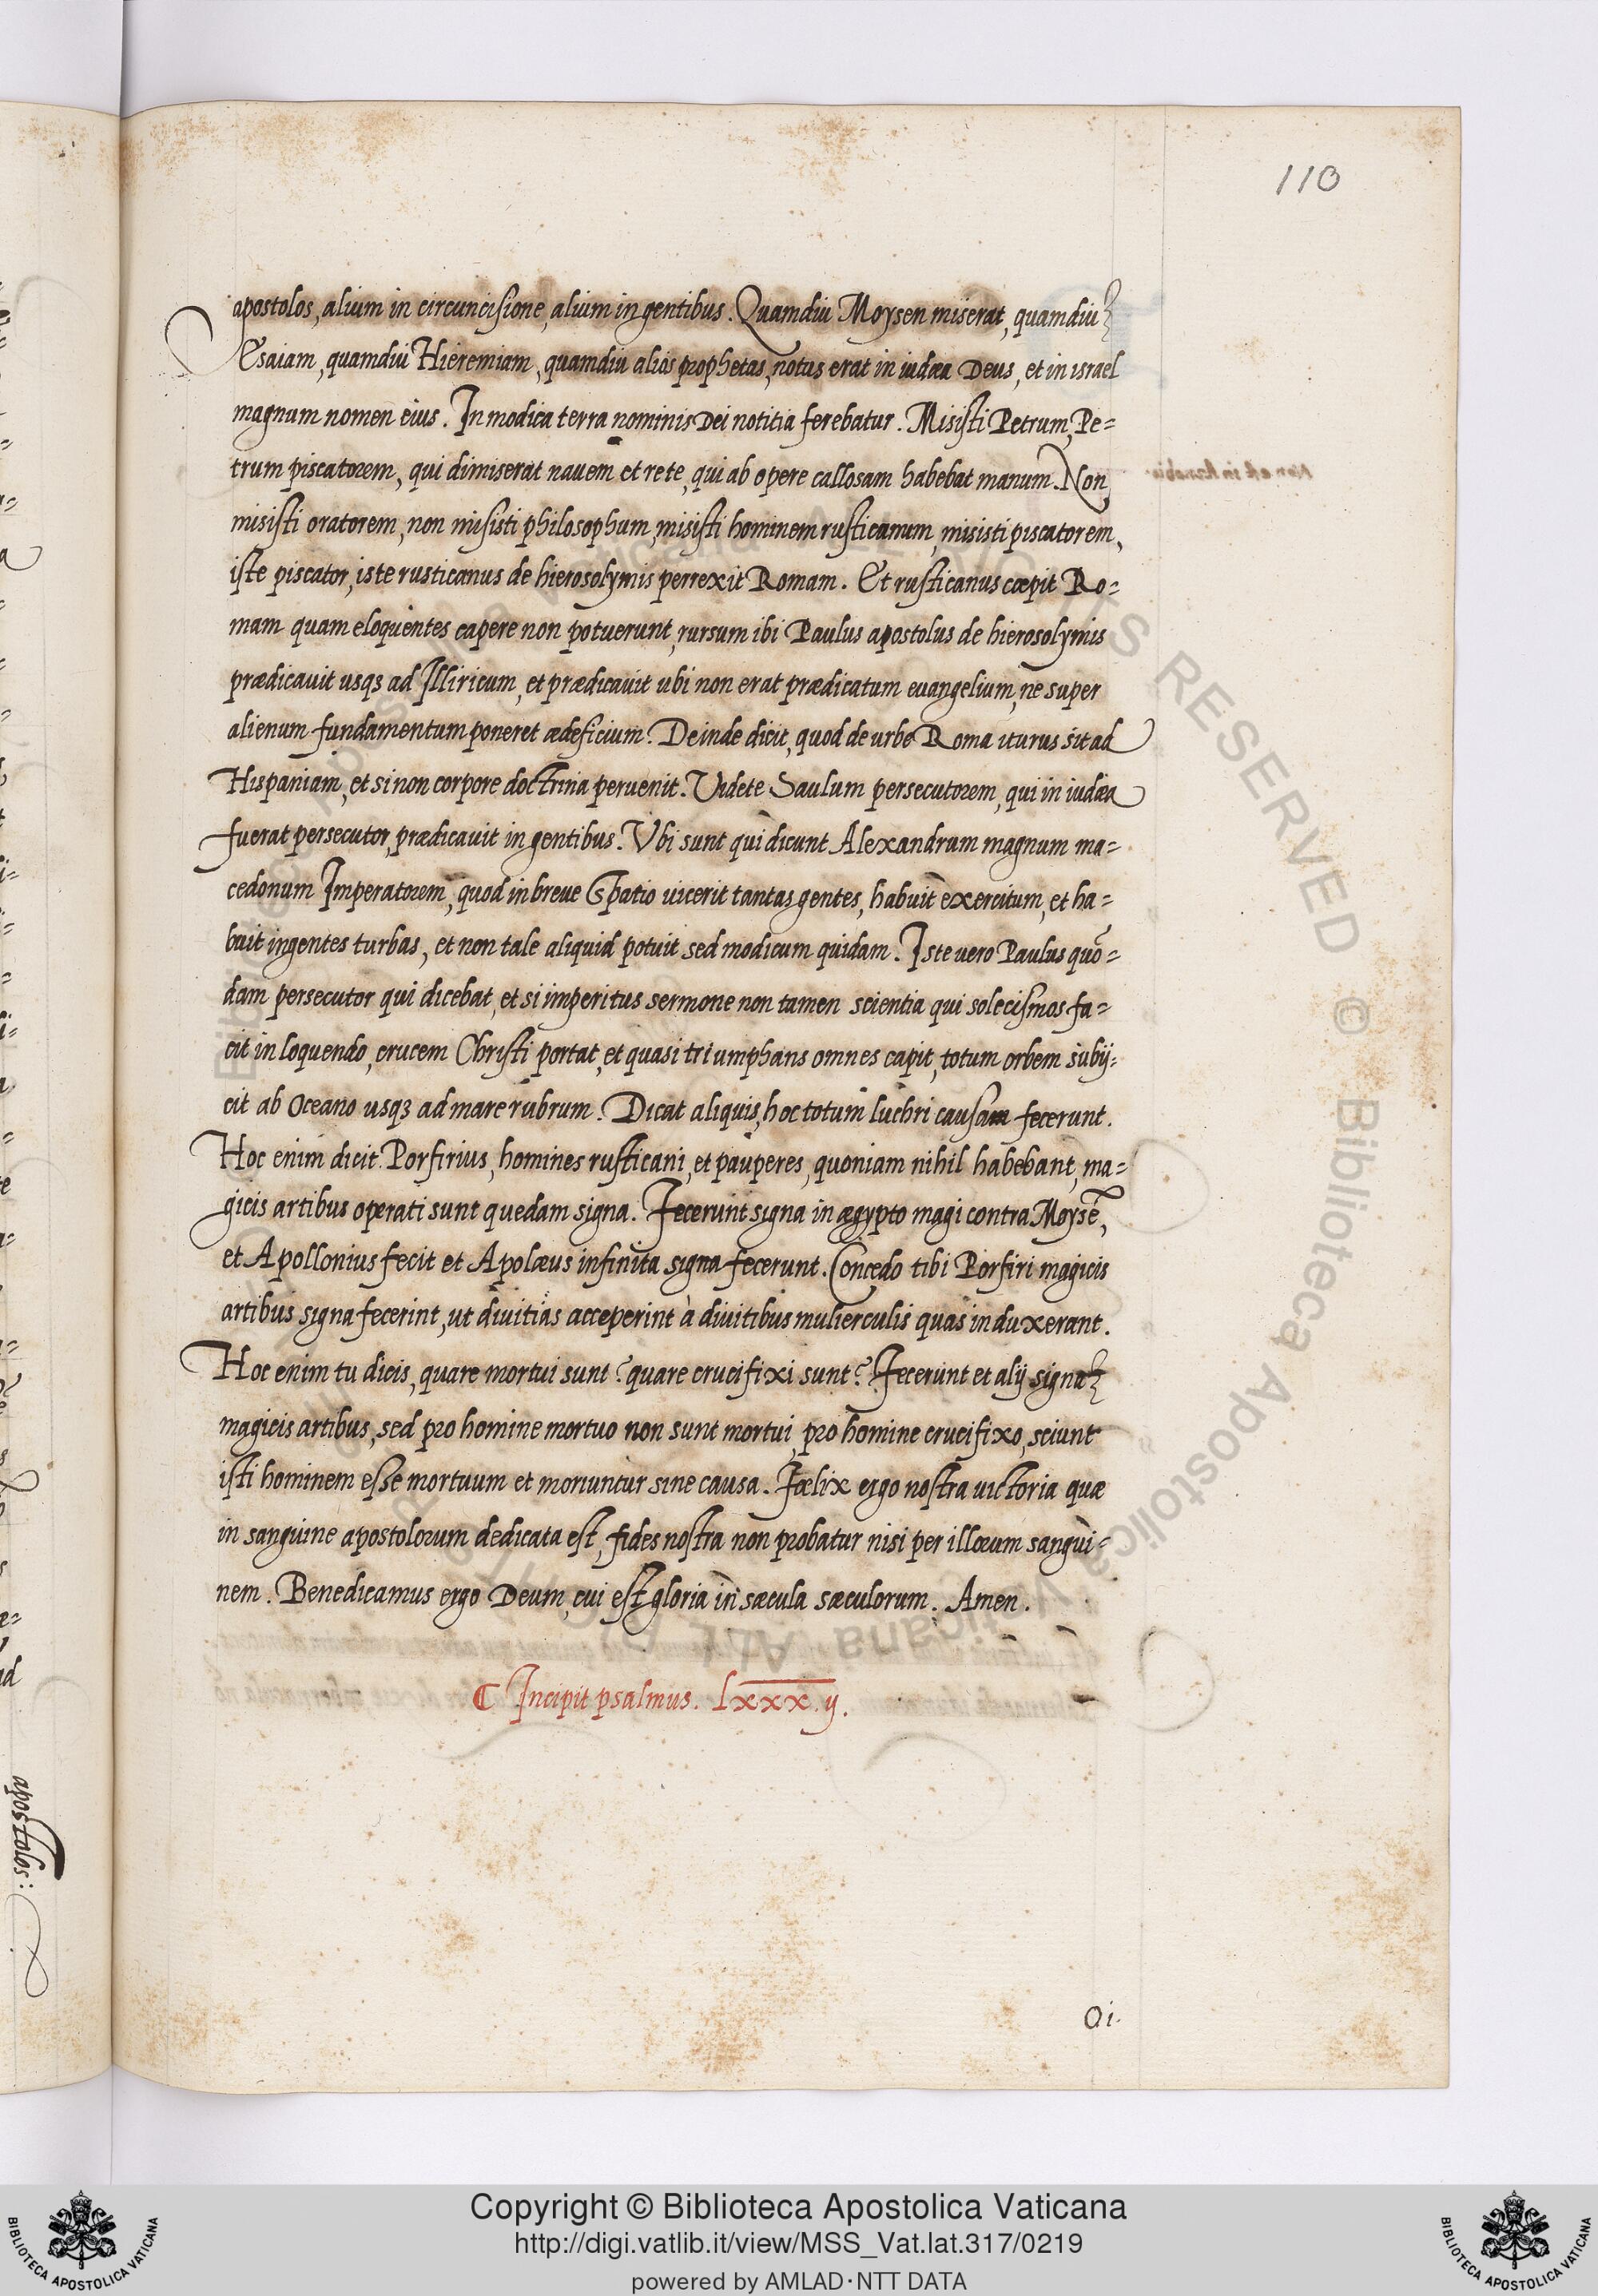 110
apostolos, alium in circuncisione, alium in gentibus. Quamdiu Moysen miserat, quamdiu
Esaiam, quamdiu Hieremiam, quamdiu alios prophetas, notus erat in iudæa Deus, et in israel
magnum nomen eius. In modica terra nominis Dei notitia ferebatur. Misisti Petrum, Pe=
trum piscatorem, qui dimiserat nauem et rete, qui ab opere callosam habebat manum. Non
misisti oratorem, non misisti philosophum, misisti hominem rusticanum, misisti piscatorem,
iste piscator, iste rusticanus de hierosolymis perrexit Romam. Et rusticanus cæpit Ro=
mam quam eloquentes capere non potuerunt, rursum ibi Paulus apostolus de hierosolymis
prædicauit usqȝ ad Illiricum, et prædicauit ubi non erat prædicatum euangelium, ne super
alienum fundamentum poneret ædeficium. Deinde dicit, quod de urbe Roma iturus sit ad
Hispaniam, et si non corpore doctrina peruenit. Videte Saulum persecutorem, qui in iudæa
fuerat persecutor, prædicauit in gentibus. Vbi sunt qui dicunt Alexandrum magnum ma=
cedonum Imperatorem, quod in breue Spatio uicerit tantas gentes, habuit exercitum, et ha=
buit ingentes turbas, et non tale aliquid potuit sed modicum quidam. Iste uero Paulus quō=
dam persecutor qui dicebat, et si imperitus sermone non tamen scientia qui solecismos fa=
cit in loquendo, crucem Christi portat, et quasi triumphans omnes capit, totum orbem subij=
cit ab Oceano usqȝ ad mare rubrum. Dicat aliquis, hoc totum luchri causam fecerunt.
Hoc enim dicit Porfirius, homines rusticani, et pauperes, quoniam nihil habebant, ma=
gicis artibus operati sunt quedam signa. Fecerunt signa in ægypto magi contra Moysē,
et Apollonius fecit et Apolæus infinita signa fecerunt. Concedo tibi Porfiri magicis
artibus signa fecerint, ut diuitias acceperint à diuitibus mulierculis quas induxerant.
Hoc enim tu dicis, quare mortui sunt? quare crucifixi sunt? Fecerunt et alij signa
magicis artibus, sed pro homine mortuo non sunt mortui, pro homine crucifixo, sciunt
isti hominem esse mortuum et moriuntur sine causa. Fælix ergo nostra uictoria quæ
in sanguine apostolorum dedicata est, fides nostra non probatur nisi per illorum sangui=
nem. Benedicamus ergo Deum, cui est gloria in sæcula sæculorum. Amen.
¶ Incipit psalmus. lxxx.ij.
Oi.
apostolos:
Copyright © Biblioteca Apostolica Vaticana
http://digi.vatlib.it/view/MSS_Vat.lat.317/0219
powered by AMLAD·NTT DATA
BIBLIOTECA APOSTOLICA VATICANA
BIBLIOTECA APOSTOLICA VATICANA